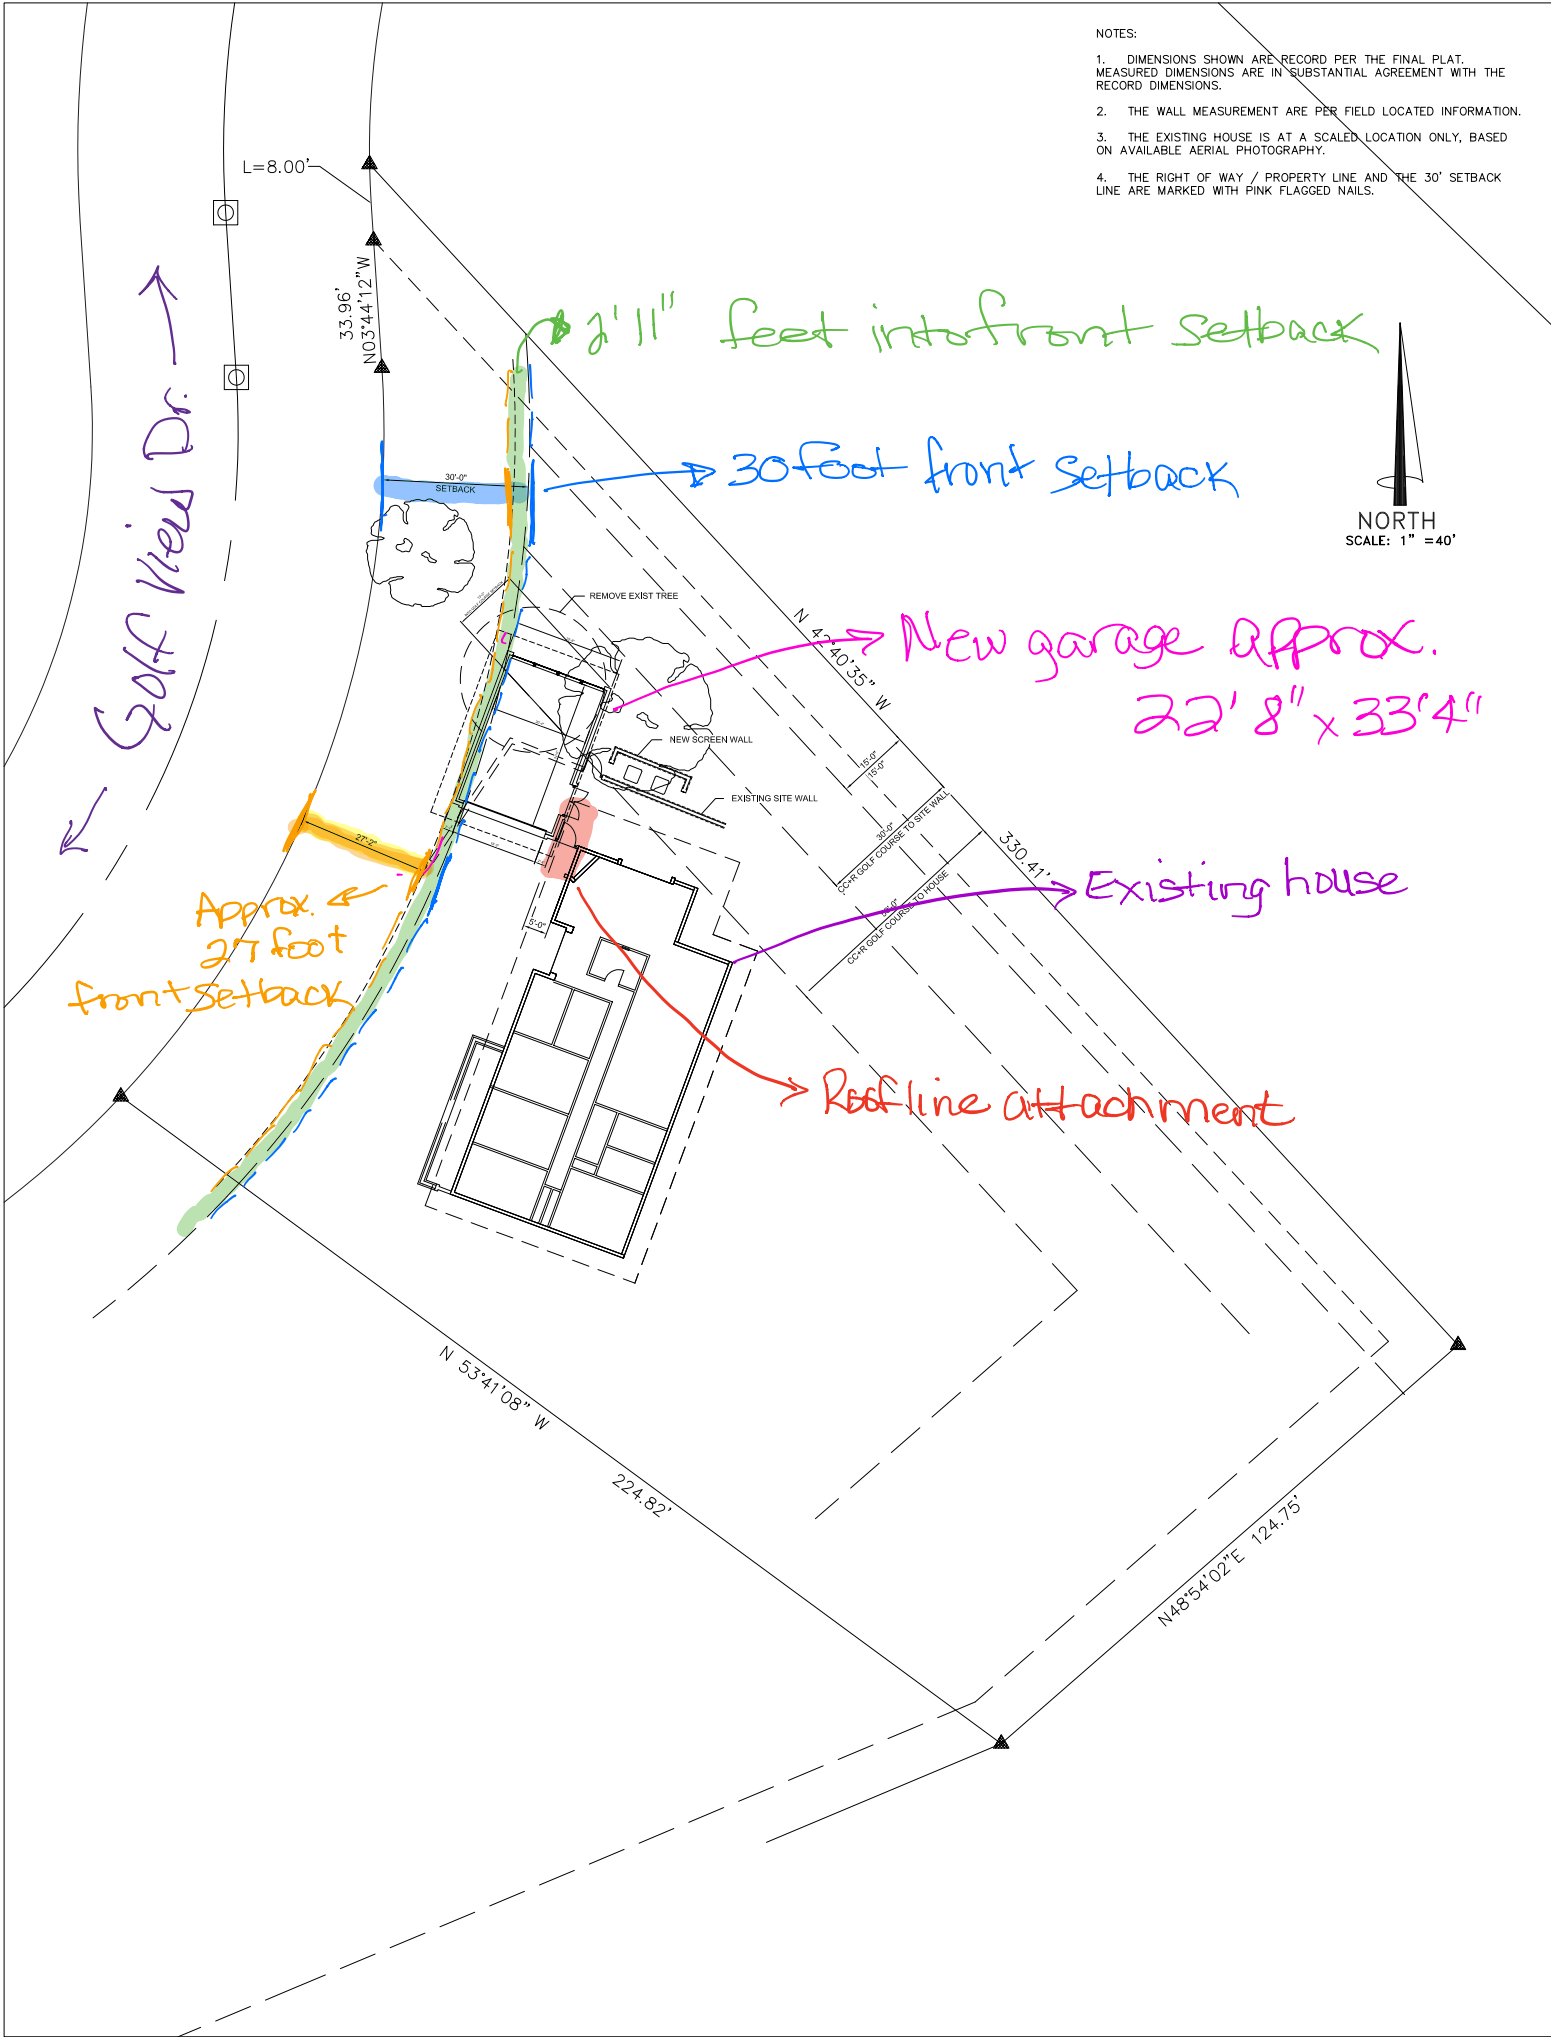 NOTES:
1. DIMENSIONS SHOWN ARE RECORD PER THE FINAL PLAT.
MEASURED DIMENSIONS ARE IN SUBSTANTIAL AGREEMENT WITH THE
RECORD DIMENSIONS.
2. THE WALL MEASUREMENT ARE PER FIELD LOCATED INFORMATION.
3. THE EXISTING HOUSE IS AT A SCALED LOCATION ONLY, BASED
ON AVAILABLE AERIAL PHOTOGRAPHY.
4. THE RIGHT OF WAY / PROPERTY LINE AND THE 30' SETBACK
LINE ARE MARKED WITH PINK FLAGGED NAILS.
L=8.00'
33.96'
N03°44'12"W
2'11" feet into front setback
Golf View Dr.
30'-0"
SETBACK
30 foot front setback
NORTH
SCALE: 1" =40'
REMOVE EXIST TREE
N 42°40'35" W
New garage approx.
22'8" x 33'4"
NEW SCREEN WALL
EXISTING SITE WALL
15'-0"
15'-0"
30'-0"
CC+R GOLF COURSE TO SITE WALL
330.41'
27'-2"
Existing house
CC+R GOLF COURSE TO HOUSE
Approx.
27 foot
front setback
5'-0"
Roof line attachment
N 53°41'08" W
224.82'
N48°54'02"E 124.75'